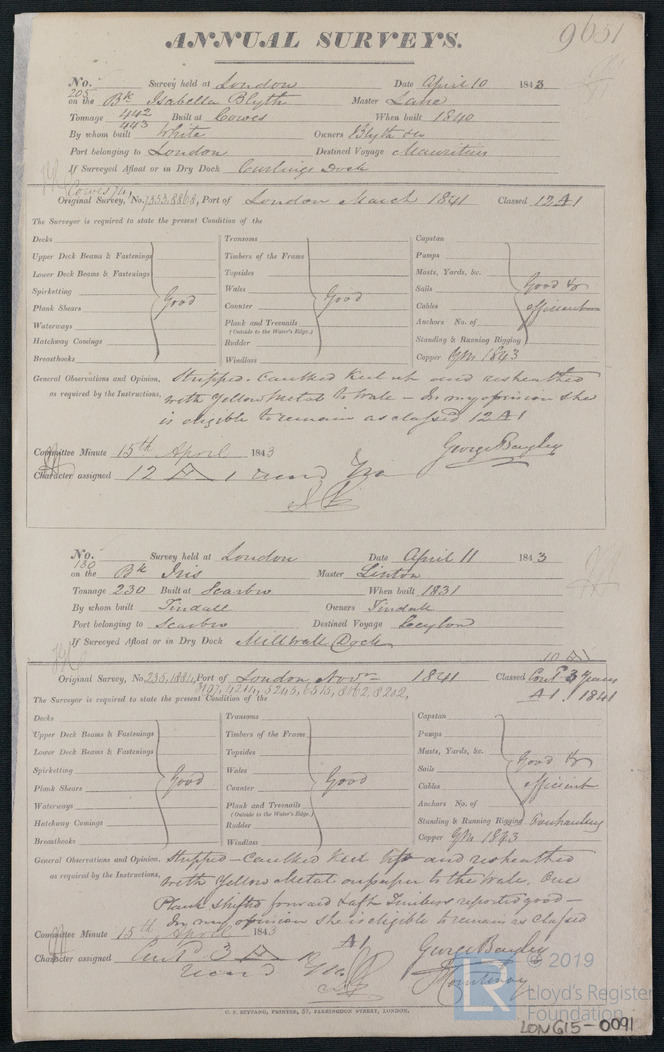 ANNUAL SURVEYS.
9651
No. 205 Survey held at London Date April 10 1843
on the Bk Isabella Blyth Master Lane
Tonnage 442 443 Built at Cowes When built 1840
By whom built White Owners Blyth & Co
Port belonging to London Destined Voyage Mauritius
If Surveyed Afloat or in Dry Dock Curlings Dock
Cowes 74,
Original Survey, No. 1353,8868, Port of London March 1841 Classed 12 A1
The Surveyor is required to state the present Condition of the
Decks Transoms Capstan
Upper Deck Beams & Fastenings Timbers of the Frame Pumps
Lower Deck Beams & Fastenings Topsides Masts, Yards, &c.
Spirketting Wales Sails Good &
Plank Shears Good Counter Good Cables efficient
Waterways Plank and Treenails Anchors No. of
(Outside to the Water's Edge.)
Hatchway Comings Rudder Standing & Running Rigging
Breasthooks Windlass Copper YM 1843
General Observations and Opinion, Stripped. Caulked Keel up and resheathed
as required by the Instructions, with Yellow Metal to Wale – In my opinion she
is eligible to remain as classed 12 A1
Committee Minute 15th April 1843 George Bayley
Character assigned 12 A 1
No. 180 Survey held at London Date April 11 1843
on the Bk Iris Master Linton
Tonnage 230 Built at Scarbro When built 1831
By whom built Tindall Owners Tindall
Port belonging to Scarbro Destined Voyage Ceylon
If Surveyed Afloat or in Dry Dock Millwall Dock
10 A
Original Survey, No. 235,1884, Port of London Novr 1841 Classed Contd 3 Years
4214, 5245, 6515, 8862, 8202,
The Surveyor is required to state the present Condition of the A1. 1841
Decks Transoms Capstan
Upper Deck Beams & Fastenings Timbers of the Frame Pumps
Lower Deck Beams & Fastenings Topsides Masts, Yards, &c.
Spirketting Wales Sails Good &
Plank Shears Good Counter Good Cables efficient
Waterways Plank and Treenails Anchors No. of
(Outside to the Water's Edge.)
Hatchway Comings Rudder Standing & Running Rigging Overhauling
Breasthooks Windlass Copper YM 1843
General Observations and Opinion, Stripped – Caulked Keel up and resheathed
as required by the Instructions, with Yellow Metal on paper to the Wale, One
Plank shifted forward & aft Timbers reported good –
In my opinion she is eligible to remain as classed
Committee Minute 15th April 1843 A1
Character assigned Contd 3 A George Bayley
C. F. SEYFANG, PRINTER, 57, FARRINGDON STREET, LONDON.
LR © 2019
Lloyd's Register
Foundation
LON615-0091